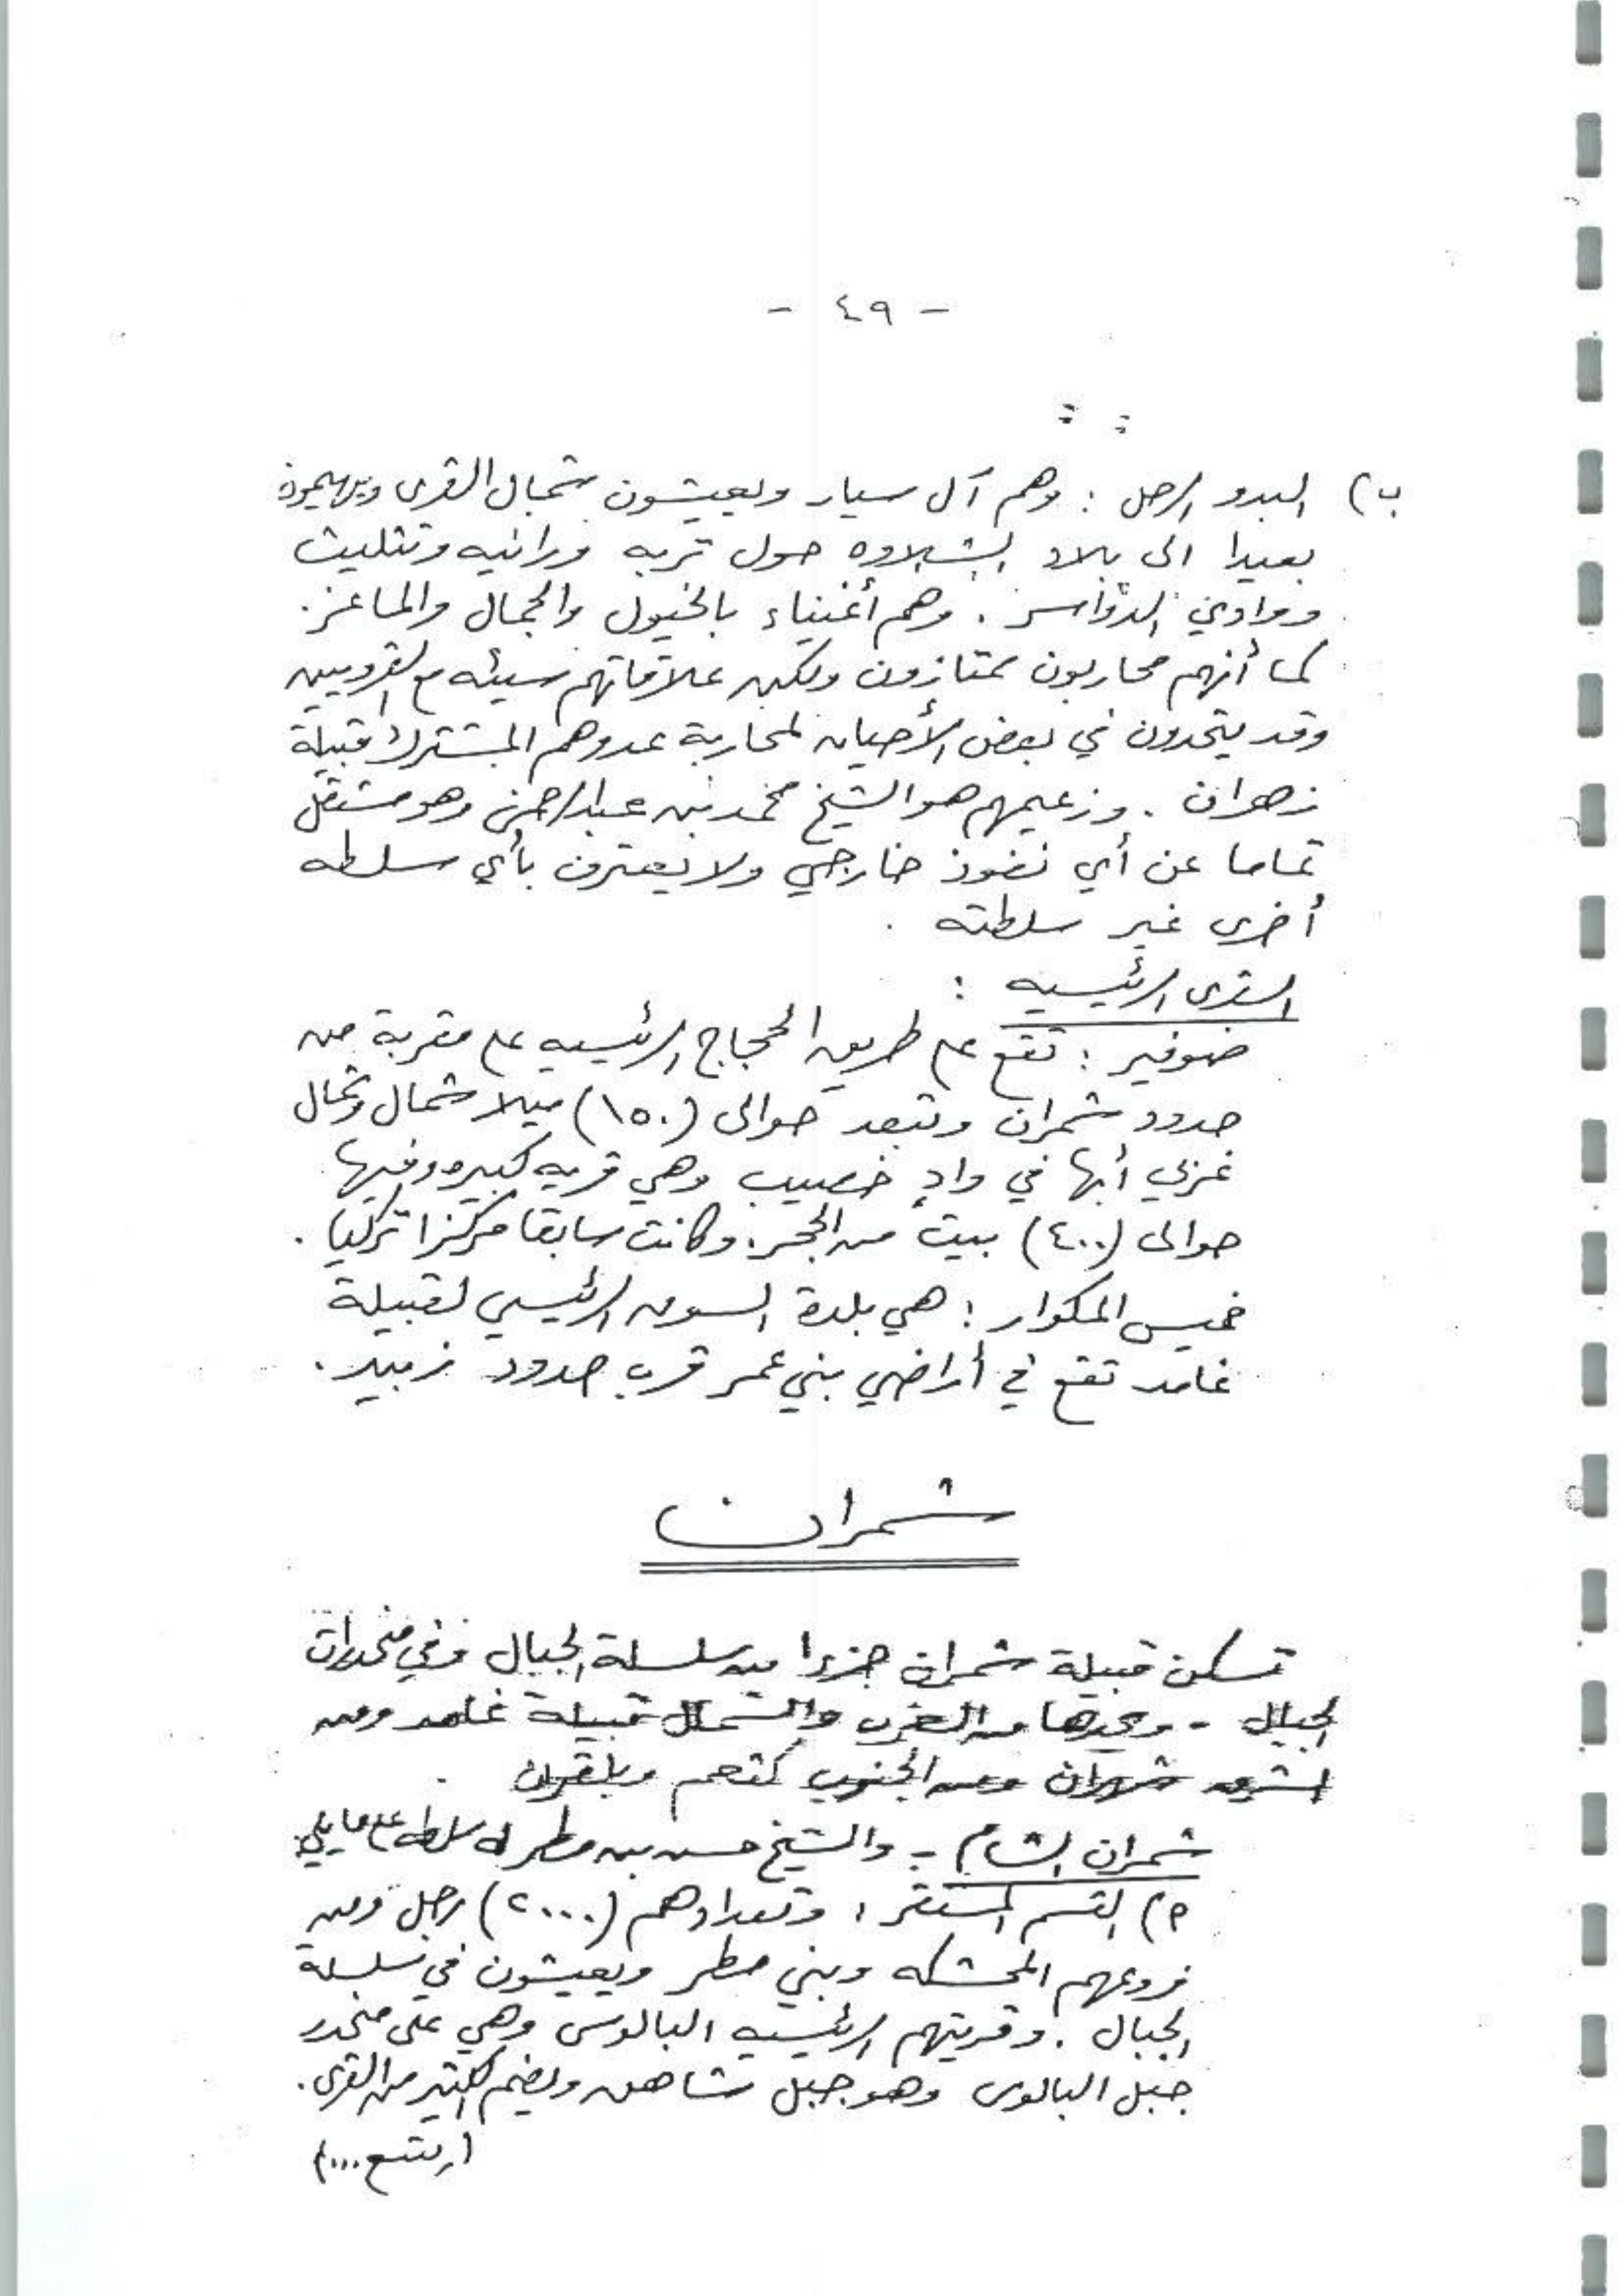 - ٤٩ -
ب) البدو الرحل : وهم آل سيار ويعيشون شمال القرى ويهيمون
بعيدا الى بلاد الشلاوه حول تربه ورانيه وتثليث
ووادي الدواسر . وهم أغنياء بالخيول والجمال والماعز .
كما أنهم محاربون ممتازون ولكن علاقاتهم سيئه مع القرويين
وقد يتحدون في بعض الأحيان لمحاربة عدوهم المشترك قبيلة
زهران . وزعيمهم هو الشيخ محمد بن عبدالرحمن وهو مستقل
تماما عن أي نفوذ خارجي ولا يعترف بأي سلطه
أخرى غير سلطته .
القرى الرئيسيه :
ضوفير : تقع على طريق الحجاج الرئيسيه على مقربة من
حدود شمران وتبعد حوالى (١٥٠) ميلا شمال وشمال
غربي أبها في وادٍ خصيب وهي قريه كبيره وفيها
حوالى (٤٠٠) بيت من الحجر . وكانت سابقا مركزا تركيا .
خميس المكوار : هي بلدة السوق الرئيسي لقبيلة
غامد تقع في أراضي بني عمر قرب حدود زبيد .
شمران
تسكن قبيلة شمران جزءا من سلسلة الجبال وفي منحدرات
الجبال - ويحدها من الغرب والشمال قبيلة غامد ومن
الشرق شهران ومن الجنوب كثعم وبلقرن .
شمران الشام - والشيخ حسن بن مطر له سلطه على مايلي :
م) القسم المستقر : وتعدادهم (٢٠٠٠) رجل ومن
فروعهم المحشكه وبني مطر ويعيشون في سلسلة
الجبال . وقريتهم الرئيسيه البالوس وهي على منحدر
جبل البالوس وهو جبل شاهق ويضم الكثير من القرى .
(يتبع ...)